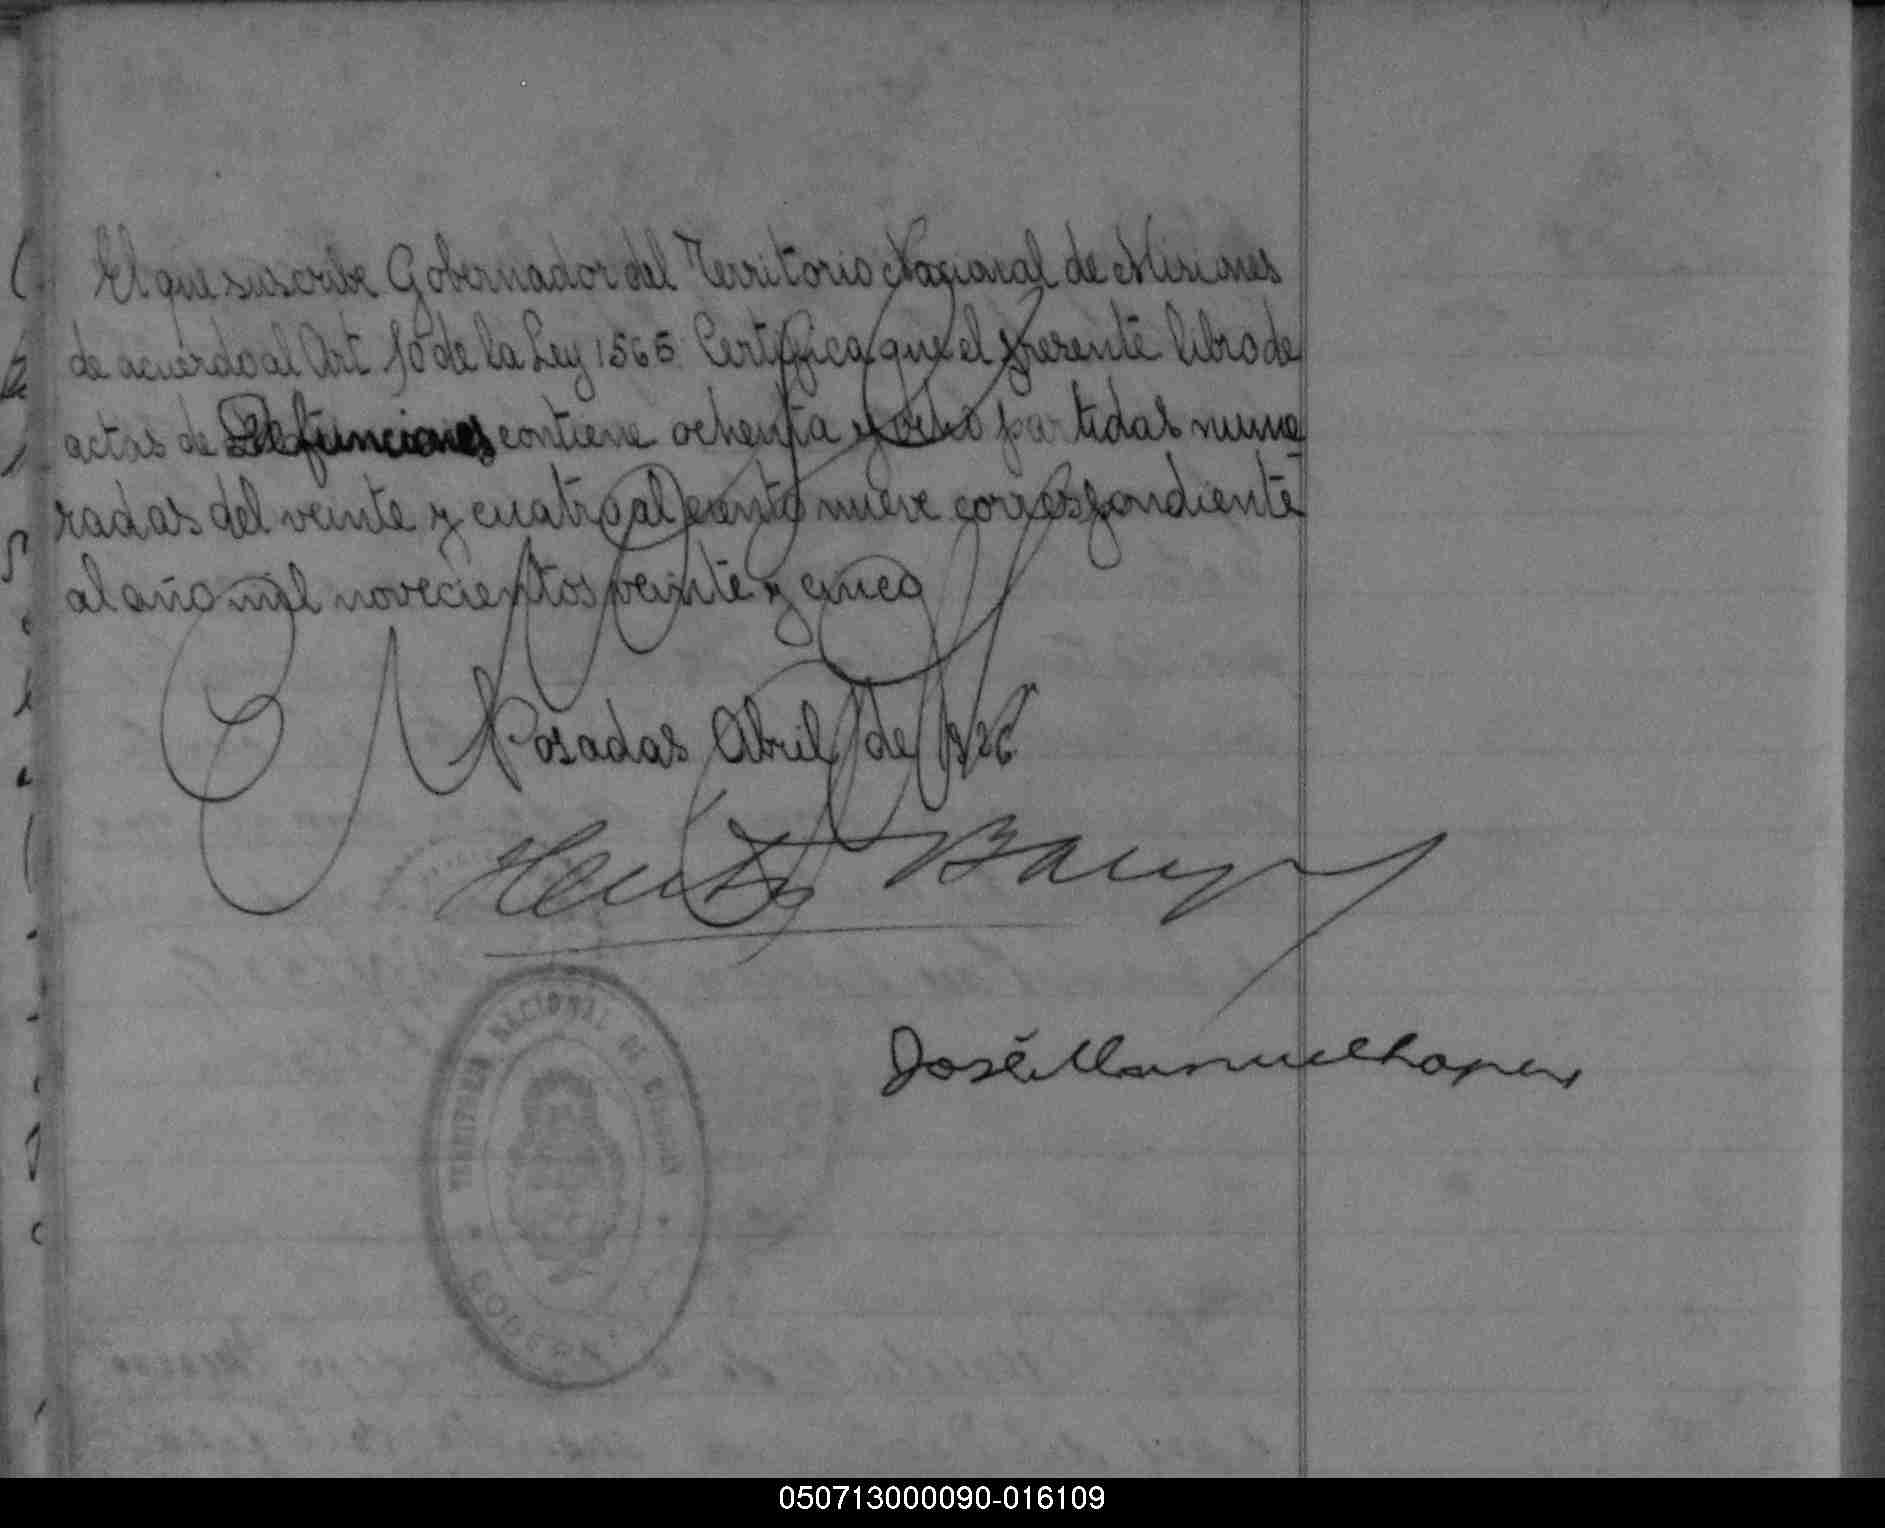 El que suscribe Gobernador del Territorio Nacional de Misiones
de acuerdo al Art 10 de la Ley 1565 Certifica que el presente libro de
actas de Defunciones contiene ochenta y ocho partidas nume
radas del veinte y cuatro al ciento nueve correspondiente
al año mil novecientos veinte y cinco
Posadas Abril de 1926
José Manuel
TERRITORIO NACIONAL DE MISIONES
050713000090-016109